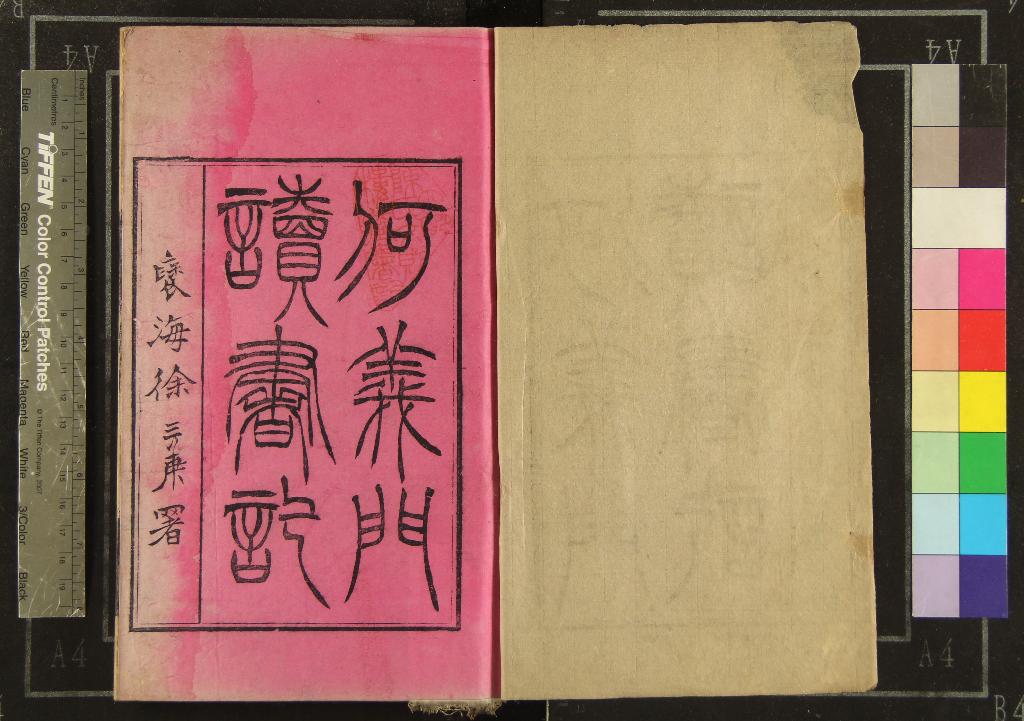 何義門
讀書記
褎海徐三庚署
Inches
Centimetres
1 2 3 4 5 6 7 8 9 10 11 12 13 14 15 16 17 18 19
TIFFEN Color Control Patches
© The Tiffen Company, 2007
Blue Cyan Green Yellow Red Magenta White 3/Color Black
A4
A4
A4
A4
B4